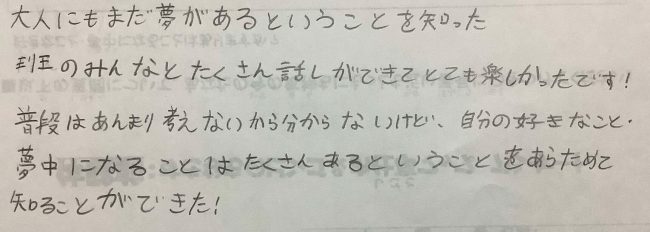 大人にもまだ夢があるということを知った
班のみんなとたくさん話しができてとても楽しかったです!
普段はあんまり考えないから分からないけど、自分の好きなこと・
夢中になることはたくさんあるということをあらためて
知ることができた!